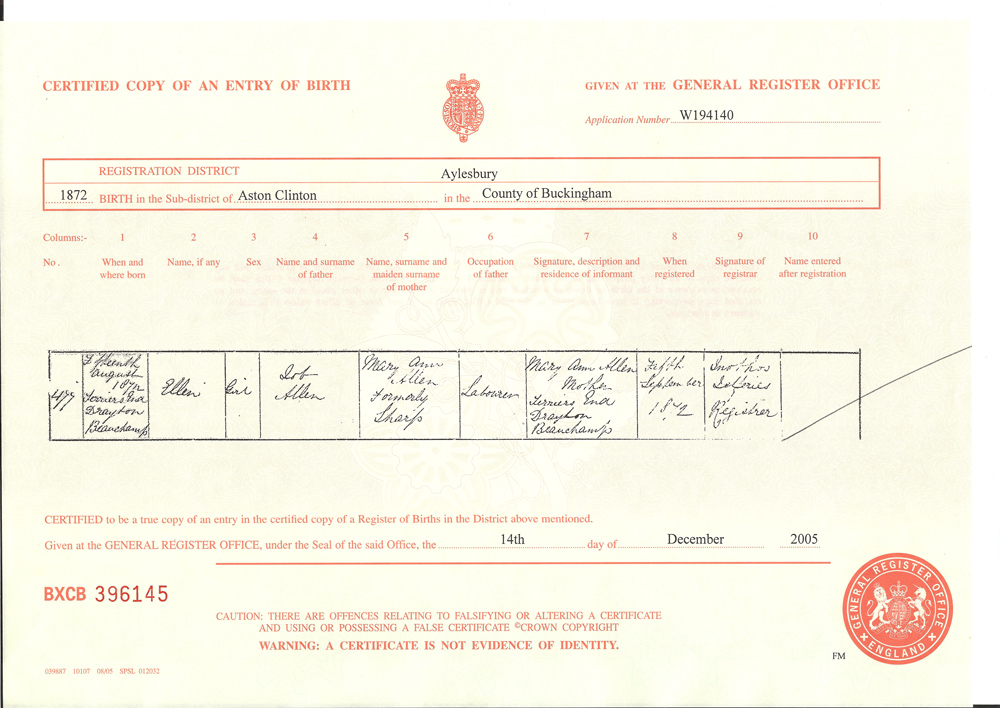 CERTIFIED COPY OF AN ENTRY OF BIRTH
GIVEN AT THE GENERAL REGISTER OFFICE
Application Number W194140
REGISTRATION DISTRICT Aylesbury
1872 BIRTH in the Sub-district of Aston Clinton in the County of Buckingham
Columns:- 1 2 3 4 5 6 7 8 9 10
No. When and where born
Name, if any
Sex
Name and surname of father
Name, surname and maiden surname of mother
Occupation of father
Signature, description and residence of informant
When registered
Signature of registrar
Name entered after registration
477
Fifteenth
August
1872
Terriers End
Drayton
Beauchamp
Ellen
Girl
Job
Allen
Mary Ann
Allen
Formerly
Sharp
Labourer
Mary Ann Allen
Mother
Terriers End
Drayton
Beauchamp
Fifth
September
1872
Registrar
CERTIFIED to be a true copy of an entry in the certified copy of a Register of Births in the District above mentioned.
Given at the GENERAL REGISTER OFFICE, under the Seal of the said Office, the 14th day of December 2005
BXCB 396145
CAUTION: THERE ARE OFFENCES RELATING TO FALSIFYING OR ALTERING A CERTIFICATE
AND USING OR POSSESSING A FALSE CERTIFICATE ©CROWN COPYRIGHT
WARNING: A CERTIFICATE IS NOT EVIDENCE OF IDENTITY.
GENERAL REGISTER OFFICE
ENGLAND
FM
039887 10107 08/05 SPSL 012032